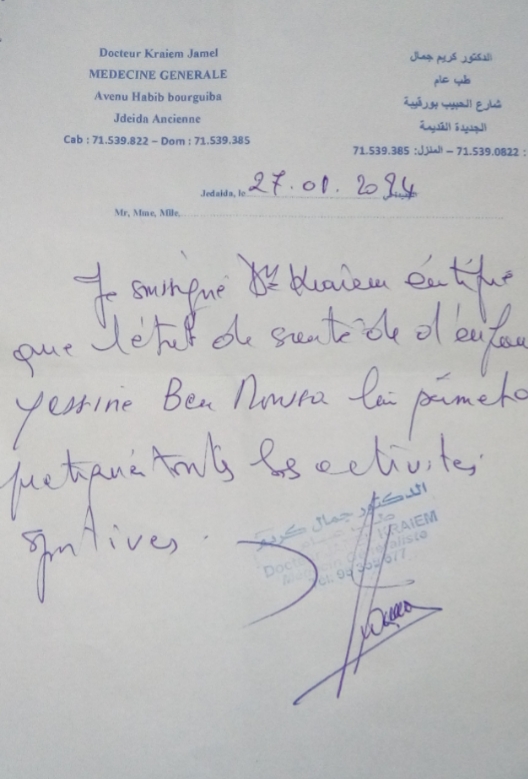 Docteur Kraiem Jamel
MEDECINE GENERALE
Avenu Habib bourguiba
Jdeida Ancienne
Cab : 71.539.822 – Dom : 71.539.385
الدكتور كريم جمال
طب عام
شارع الحبيب بورقيبة
الجديدة القديمة
71.539.0822 – المنزل: 71.539.385
Jedaida, le 27.01.2024
Mr, Mme, Mlle
Je soussigné Dr Kraiem certifie
que l'état de santé de d'enfan
Yessine Ben Moussa lui permet
pratiquer toutes les activités
sportives.
الدكتور جمال كريم
KRAIEM